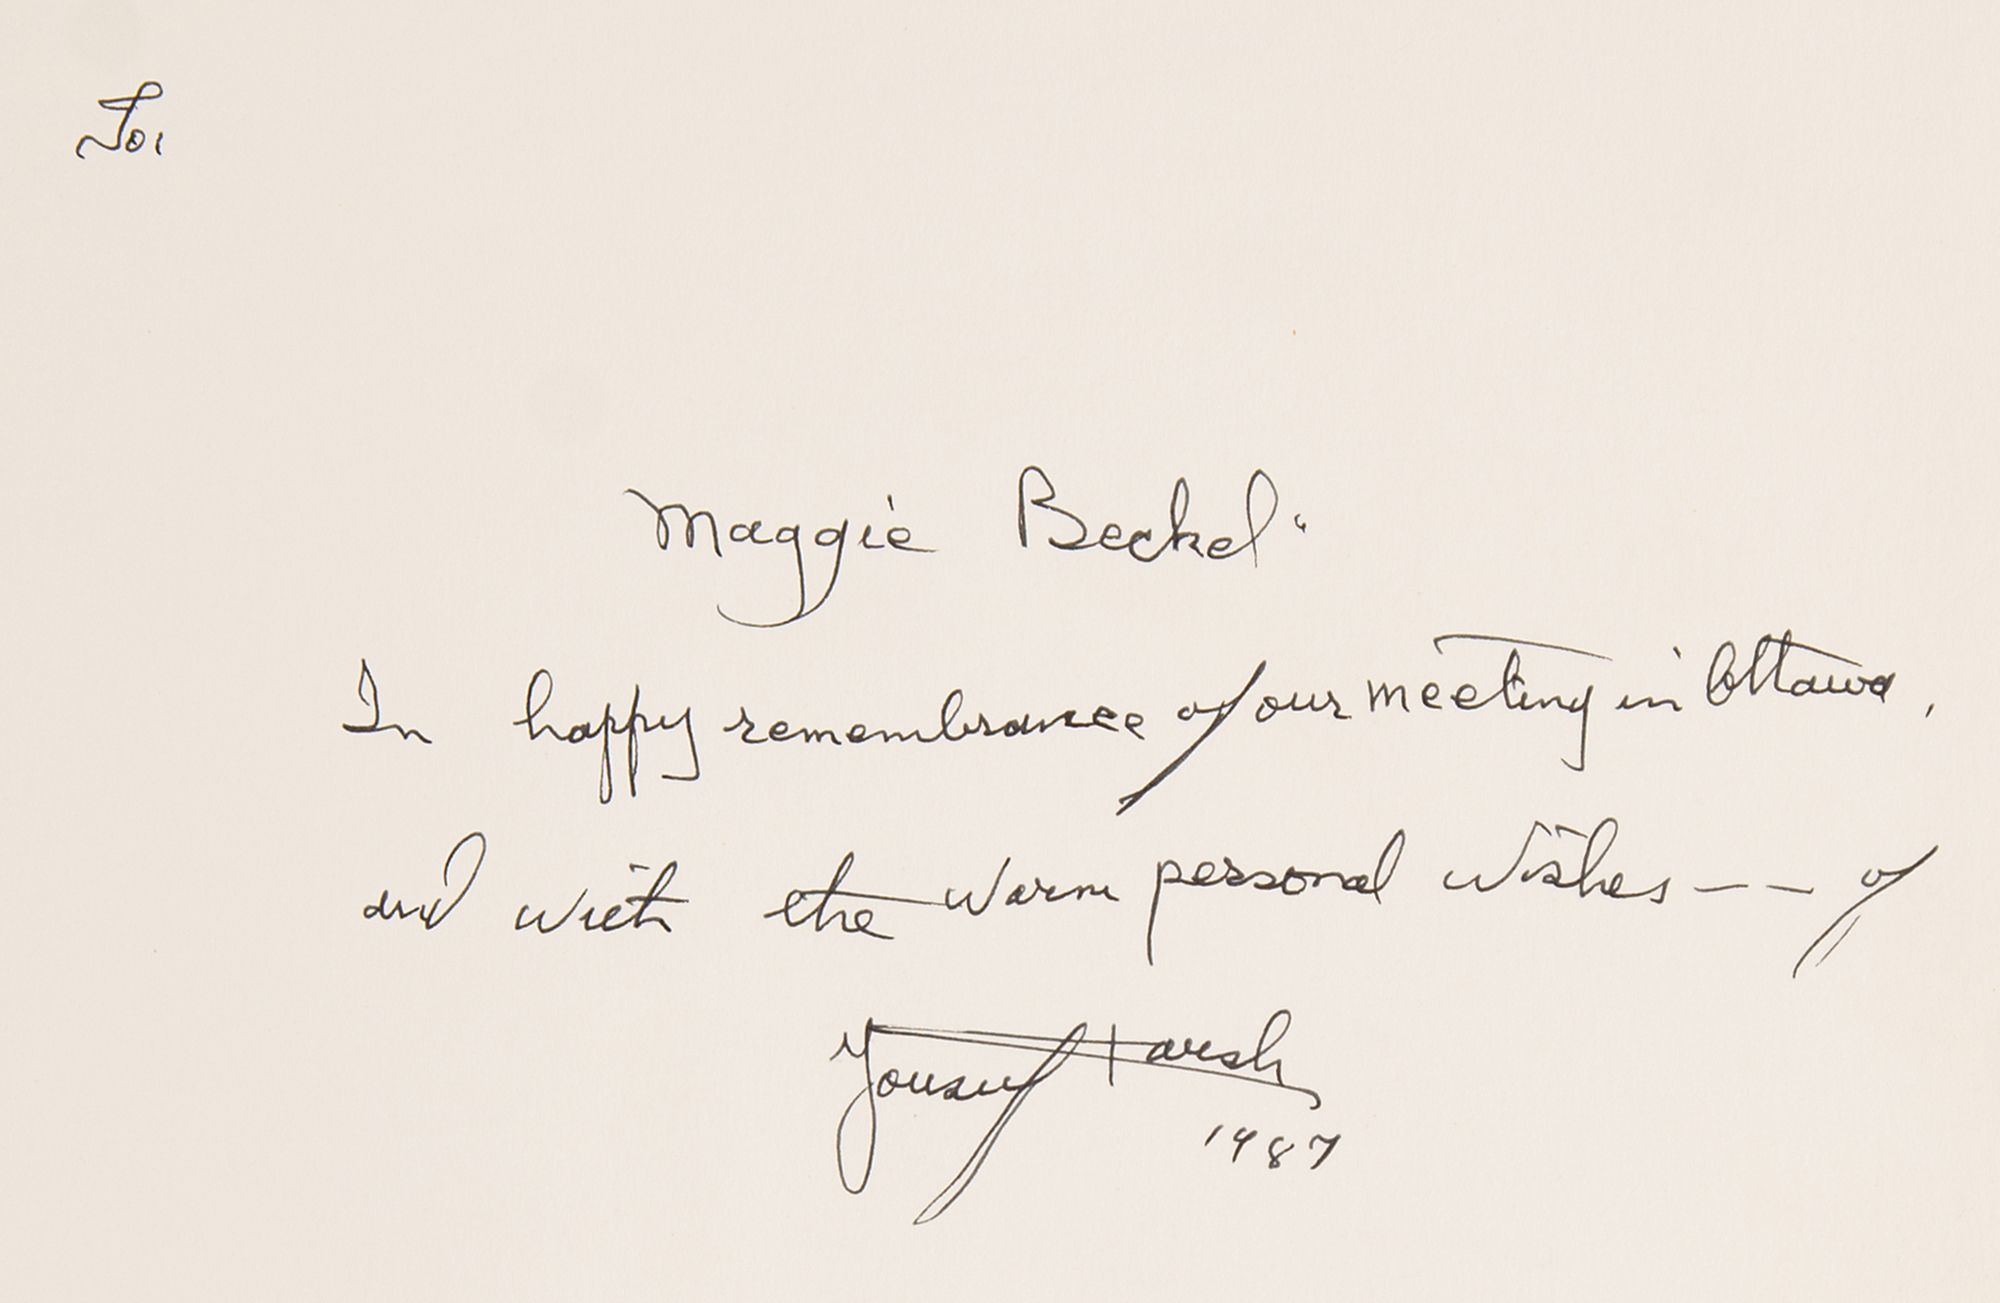 To:
Maggie Beckel"
In happy remembrance of our meeting in Ottawa,
and with the warm personal wishes -- of
Yousuf Karsh
1987